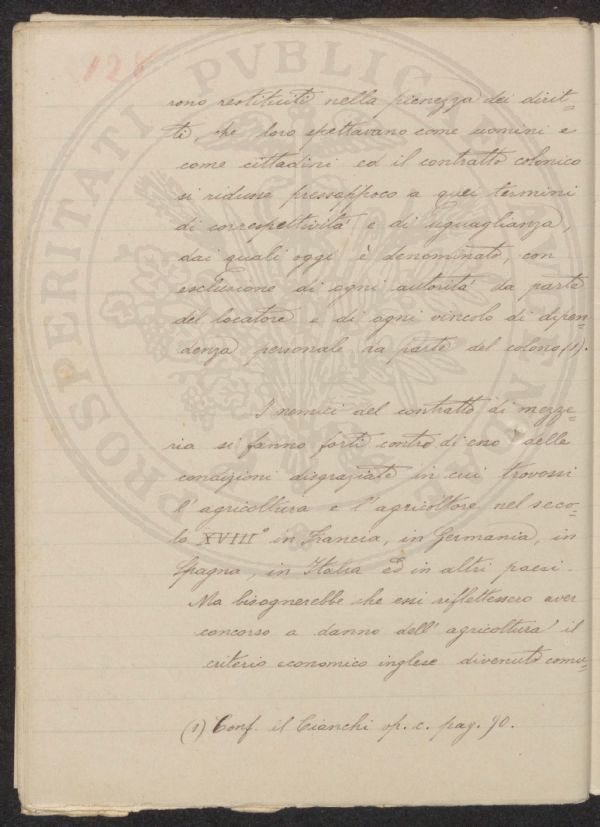 128
rono restituiti nella pienezza dei dirit-
ti, che loro spettavano come uomini e
come cittadini ed il contratto colonico
si ridusse pressappoco a quei termini
di correspettività e di uguaglianza,
dai quali oggi è denominato, con
esclusione di ogni autorità da parte
del locatore e di ogni vincolo di dipen-
denza personale da parte del colono (1).
I nemici del contratto di mezze-
ria si fanno forti contro di esso delle
condizioni disgraziate in cui trovossi
l'agricoltura e l'agricoltore nel seco-
lo XVIII° in Francia, in Germania, in
Spagna, in Italia ed in altri paesi.
Ma bisognerebbe che essi riflettessero aver
concorso a danno dell'agricoltura il
criterio economico inglese divenuto comu-
(1) Conf. il Cianchi op. c. pag. 90.
PROSPERITATI PVBLICAE AVGENDAE